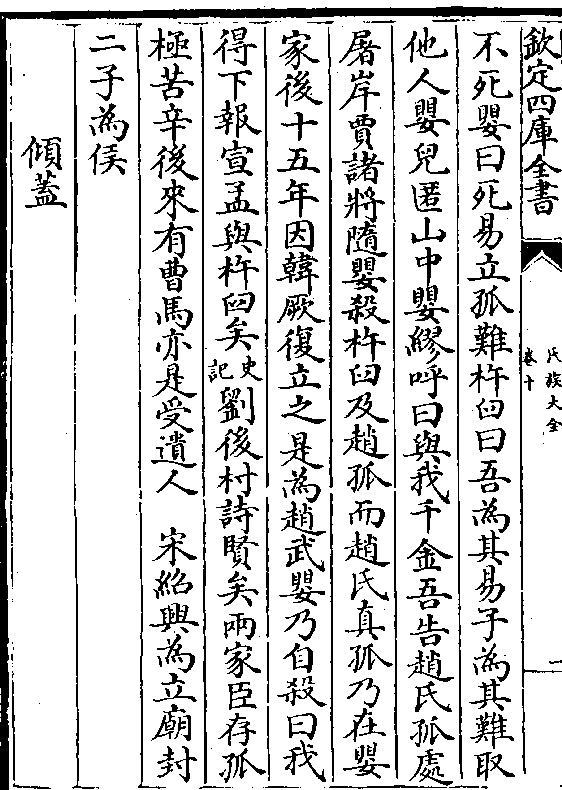 欽定四庫全書
氏族大全
卷十
一
不死嬰曰死易立孤難杵臼曰吾為其易子為其難取
他人嬰兒匿山中嬰繆呼曰與我千金吾告趙氏孤處
屠岸賈諸將隨嬰殺杵臼及趙孤而趙氏真孤乃在嬰
家後十五年因韓厥復立之是為趙武嬰乃自殺曰我
得下報宣孟與杵臼矣史記劉後村詩賢矣兩家臣存孤
極苦辛後來有曹馬亦是受遺人　宋紹興為立廟封
二子為侯
傾蓋